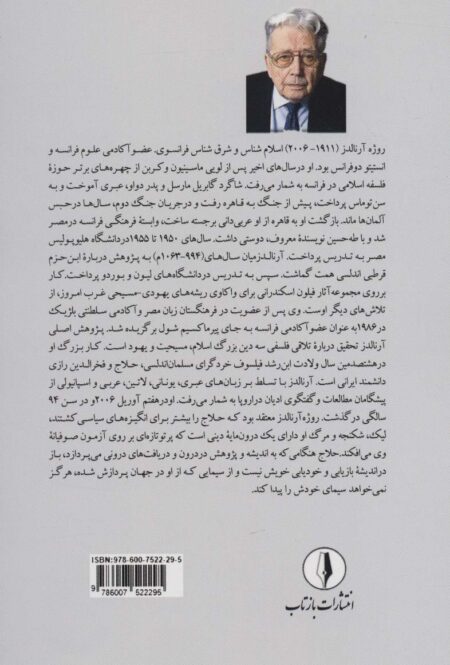 روژه آرنالدز (۱۹۱۱-۲۰۰۶) اسلام شناس و شرق شناس فرانسوی. عضو آکادمی علوم فرانسه و
انستیتو دوفرانس بود. او در سال‌های اخیر پس از لویی ماسینیون و کربن از چهره‌های برتر حوزهٔ
فلسفه اسلامی در فرانسه به شمار می‌رفت. شاگرد گابریل مارسل و پدر دواو، عبری آموخت و به
سن توماس پرداخت، پیش از جنگ به قاهره رفت و در جریان جنگ دوم، سال‌ها در حبس
آلمان‌ها ماند. بازگشت او به قاهره از او عربی‌دانی برجسته ساخت، وابستهٔ فرهنگی فرانسه در مصر
شد و با طه‌حسین نویسندهٔ معروف، دوستی داشت. سال‌های ۱۹۵۰ تا ۱۹۵۵ در دانشگاه هلیوپولیس
مصر به تدریس پرداخت. آرنالدز میان سال‌های (۹۹۴-۱۰۶۳م) به پژوهش دربارهٔ ابن حزم
قرطبی اندلسی همت گماشت. سپس به تدریس در دانشگاه‌های لیون و بوردو پرداخت. کار
بر روی مجموعه آثار فیلون اسکندرانی برای واکاوی ریشه‌های یهودی-مسیحی غرب امروز، از
تلاش‌های دیگر اوست. وی پس از عضویت در فرهنگستان زبان مصر و آکادمی سلطنتی بلژیک در
در ۱۹۸۶ به عنوان عضو آکادمی فرانسه به جای پیر ماکسیم شول برگزیده شد. پژوهش اصلی
آرنالدز تحقیق دربارهٔ تلاقی فلسفی سه دین بزرگ اسلام، مسیحیت و یهود است. کار بزرگ او
در هشتصدمین سال ولادت ابن رشد فیلسوف خردگرای مسلمان اندلسی، حلاج و فخرالدین رازی
دانشمند ایرانی است. آرنالدز با تسلط بر زبان‌های عبری، یونانی، لاتین، عربی و اسپانیولی از
پیشگامان مطالعات و گفتگوی ادیان در اروپا به شمار می‌رفت. او در هفتم آوریل ۲۰۰۶ و در سن ۹۴
سالگی درگذشت. روژه آرنالدز معتقد بود که حلاج را بیشتر برای انگیزه‌های سیاسی کشتند،
لیک، شکنجه و مرگ او دارای یک درون‌مایهٔ دینی است که پرتو تازه‌ای بر روی آزمون صوفیانهٔ
وی می‌افکند. حلاج هنگامی که به اندیشه و پژوهش در درون و دریافت‌های درونی می‌پردازد، باز
در اندیشهٔ بازیابی و خودیابی خویش نیست و از سیمایی که از او در جهان پردازش شده، هرگز
نمی‌خواهد سیمای خودش را پیدا کند.
ISBN: 978-600-7522-29-5
9 786007 522295
انتشارات بازتاب